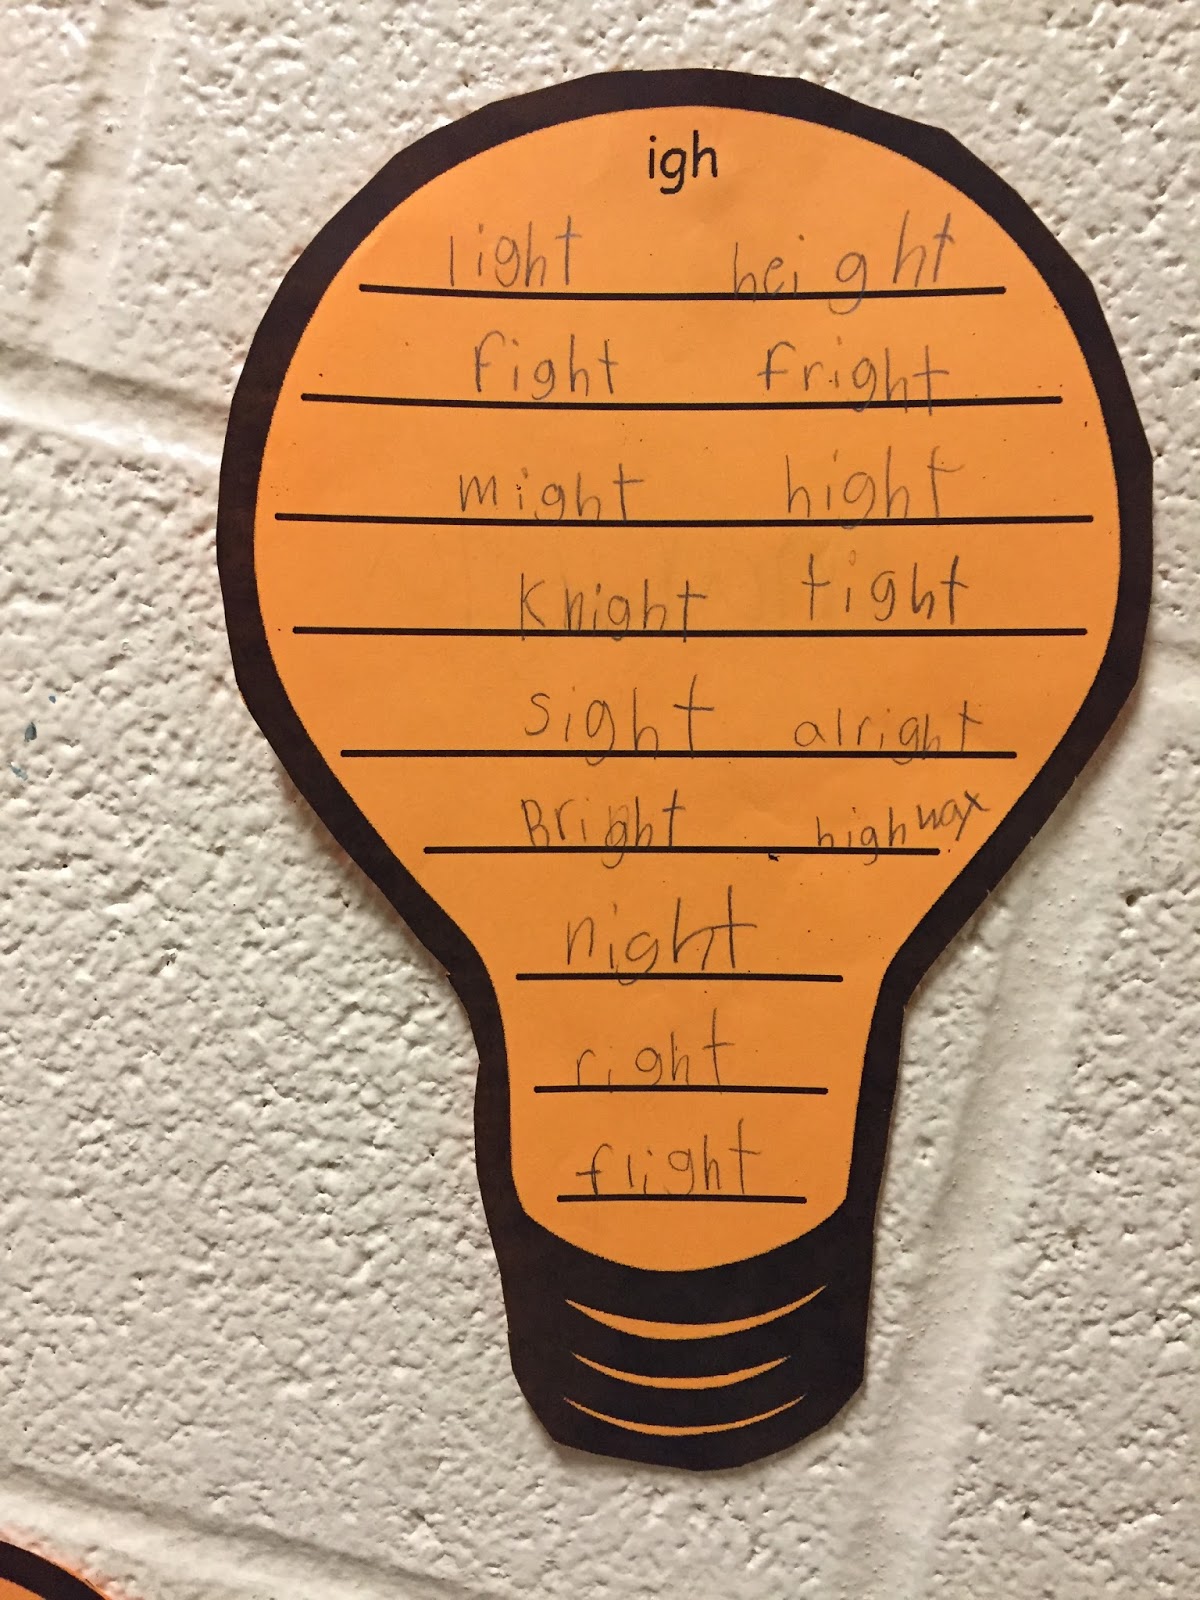 igh
light height
fight fright
might hight
Knight tight
sight alright
Bright highway
night
right
flight